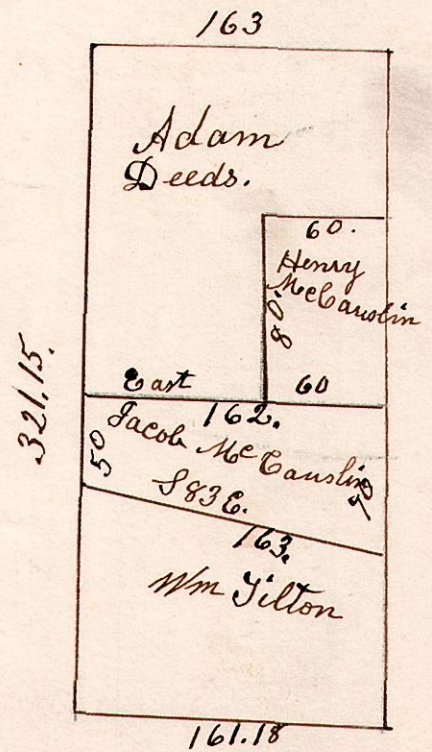 163
Adam
Deeds.
60.
Henry
McCauslin
80.
321.15.
East
60
162.
50
Jacob McCauslin
S 83 E.
70
163.
Wm Tilton
161.18